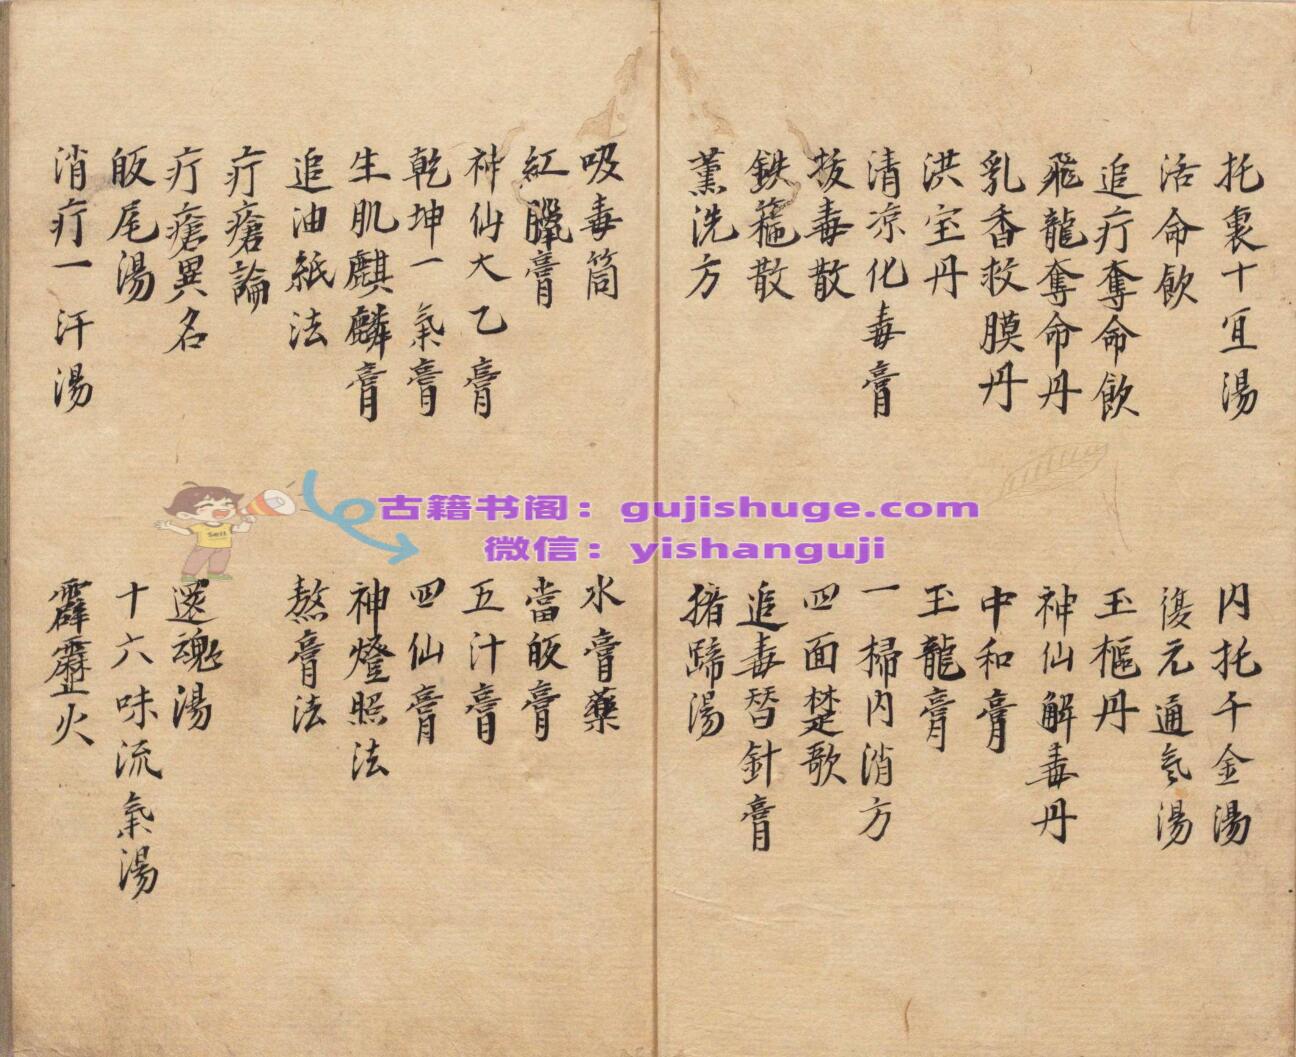 托裏十宜湯
内托千金湯
活命飲
復元通氣湯
追疔奪命飲
玉樞丹
飛龍奪命丹
神仙解毒丹
乳香救膜丹
中和膏
洪宝丹
玉龍膏
清凉化毒膏
一掃内消方
拔毒散
四面楚歌
鉄箍散
追毒替針膏
薰洗方
猪蹄湯
吸毒筒
水膏藥
紅膏
當皈膏
神仙大乙膏
五汁膏
乾坤一氣膏
四仙膏
生肌麒麟膏
神燈照法
追油紙法
熬膏法
疔瘡論
疔瘡異名
還魂湯
皈尾湯
十六味流氣湯
消疔一汗湯
霹靂火
古籍书阁：gujishuge.com
微信：yishanguji